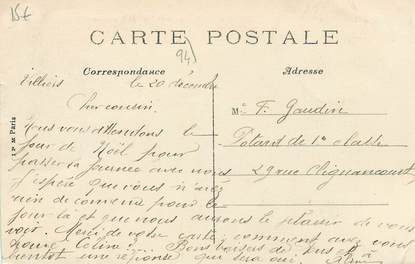 15€
94
CARTE POSTALE
Correspondance
Adresse
Villiers le 20 décembre
Cher cousin,
Nous vous attendons le
jour de Noël pour
passer la journée avec nous
J'espère que vous n'avez
rien de convenu pour le
jour là et que nous aurons le plaisir de vous
voir. Merci de votre carte, comment avez vous
Bons baisers de tous et à
bientôt une réponse qui sera oui.
M. F. Gaudin
Potard de 1e classe
29 rue Clignancourt